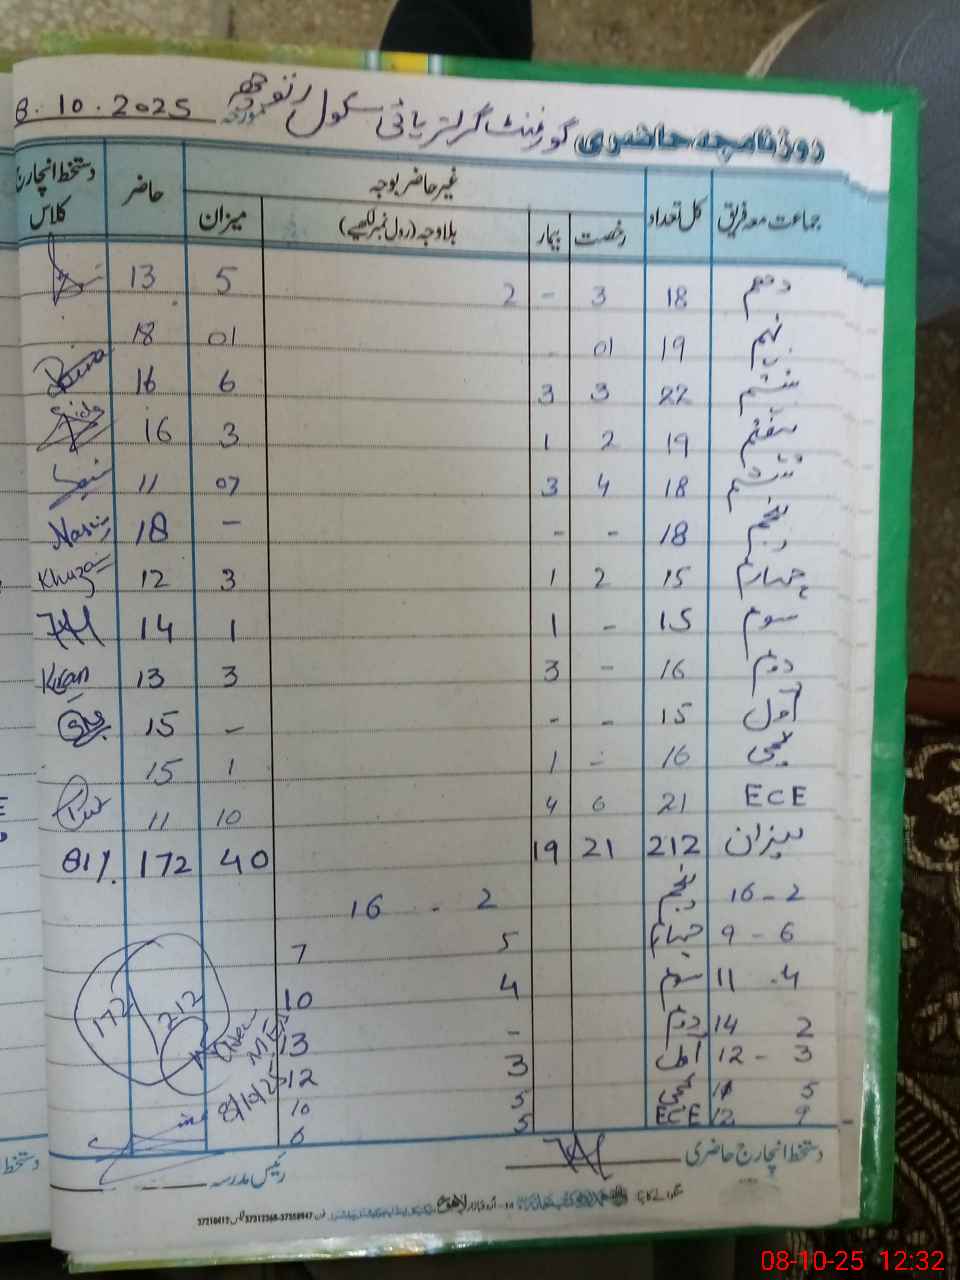 روزنامچہ حاضری گورنمنٹ گرلز ہائی سکول رتوچھہ مورخہ 8.10.2025
جماعت معہ فریق کل تعداد غیر حاضر بوجہ حاضر دستخط انچارج کلاس
رخصت بیمار بلاوجہ (رول نمبر لکھیے) میزان
دہم 18 3 - 2 5 13
نہم 19 01 01 18
ہشتم 22 3 3 6 16
ہفتم 19 2 1 3 16
ششم 18 4 3 07 11
پنجم 18 - - - 18 Nasir
چہارم 15 2 1 3 12 Khuza
سوم 15 - 1 1 14
دوم 16 - 3 3 13 Kiran
اول 15 - - - 15
کچی 16 - 1 1 15
ECE 21 6 4 10 11
میزان 212 21 19 40 172 81%
2 - 16 پنجم 2 - 16
6 - 9 چہارم 5 7
4 11 سوم 4 10
2 14 دوم - 13
3 - 12 اول 3 12
5 11 کچی 5 10
9 12 ECE 5 6
172 212
8/10/25
دستخط انچارج حاضری
رئیس مدرسہ
08-10-25 12:32